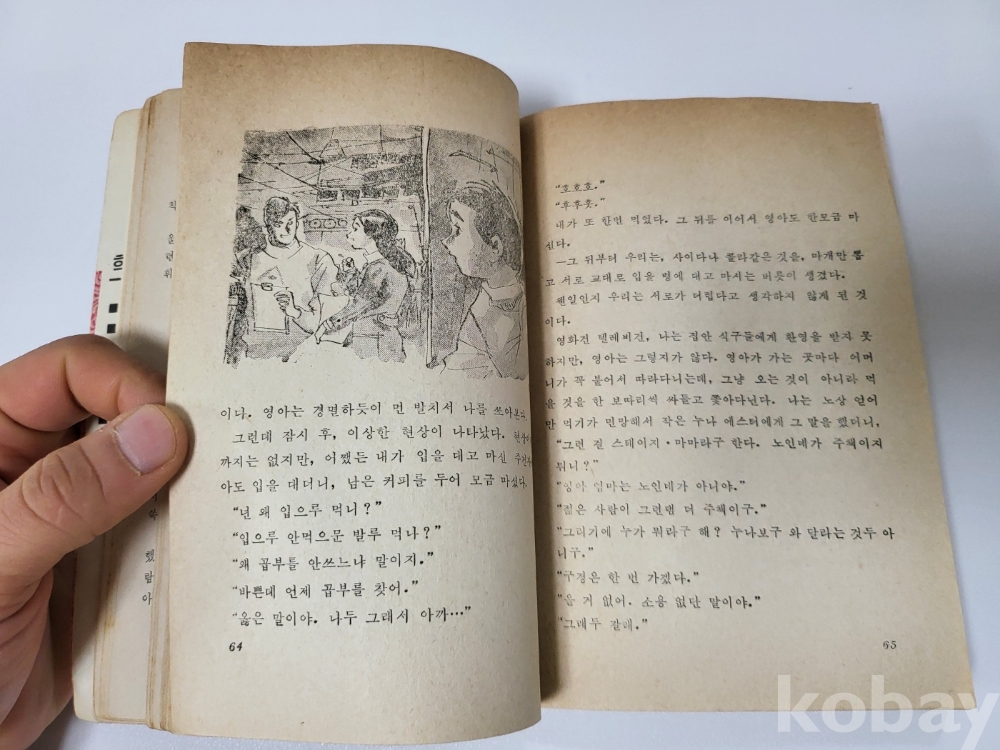 흔
착
올
렁
위
쑥
했
랕
아
이다. 영아는 경멸하듯이 먼 발치서 나를 쏘아본다.
그런데 잠시 후, 이상한 현상이 나타났다.
까지는 없지만, 어쨌든 내가 입을 대고 마신
아도 입을 대더니, 남은 커피를 두어 모금 마셨다.
“넌 왜 입으루 먹니?”
“입으루 안먹으문 발루 먹나?”
“왜 꼽부를 안쓰느냐 말이지.”
“바쁜데 언제 꼽부를 찾어.”
“옳은 말이야. 나두 그래서 아까…”
64
“호호호.”
“후후훗.”
내가 또 한번 먹었다. 그 뒤를 이어서 영아도 한모금 마
신다.
—그 뒤부터 우리는, 사이다나 콜라같은 것을, 마개만 뽑
고 서로 교대로 입을 병에 대고 마시는 버릇이 생겼다.
웬일인지 우리는 서로가 더럽다고 생각하지 않게 된 것
이다.
영화건 텔레비건, 나는 집안 식구들에게 환영을 받지 못
하지만, 영아는 그렇지가 않다. 영아가 가는 곳마다 어머
니가 꼭 붙어서 따라다니는데, 그냥 오는 것이 아니라 먹
을 것을 한 보따리씩 싸들고 쫓아다닌다. 나는 노상 얻어
만 먹기가 면망해서 작은 누나 에스터에게 그 말을 했더니,
“그런 걸 스테이지·마마라구 한다. 노인네가 주책이지
뭐니?”
“영아 엄마는 노인네가 아니야.”
“젊은 사람이 그런댐 더 주책이구.”
“그러기에 누가 뭐라구 해? 누나보구 와 달라는것두 아
니구.”
“구경은 한 번 가겠다.”
“올 거 없어. 소용 없단 말이야.”
“그래두 갈래.”
65
kobay